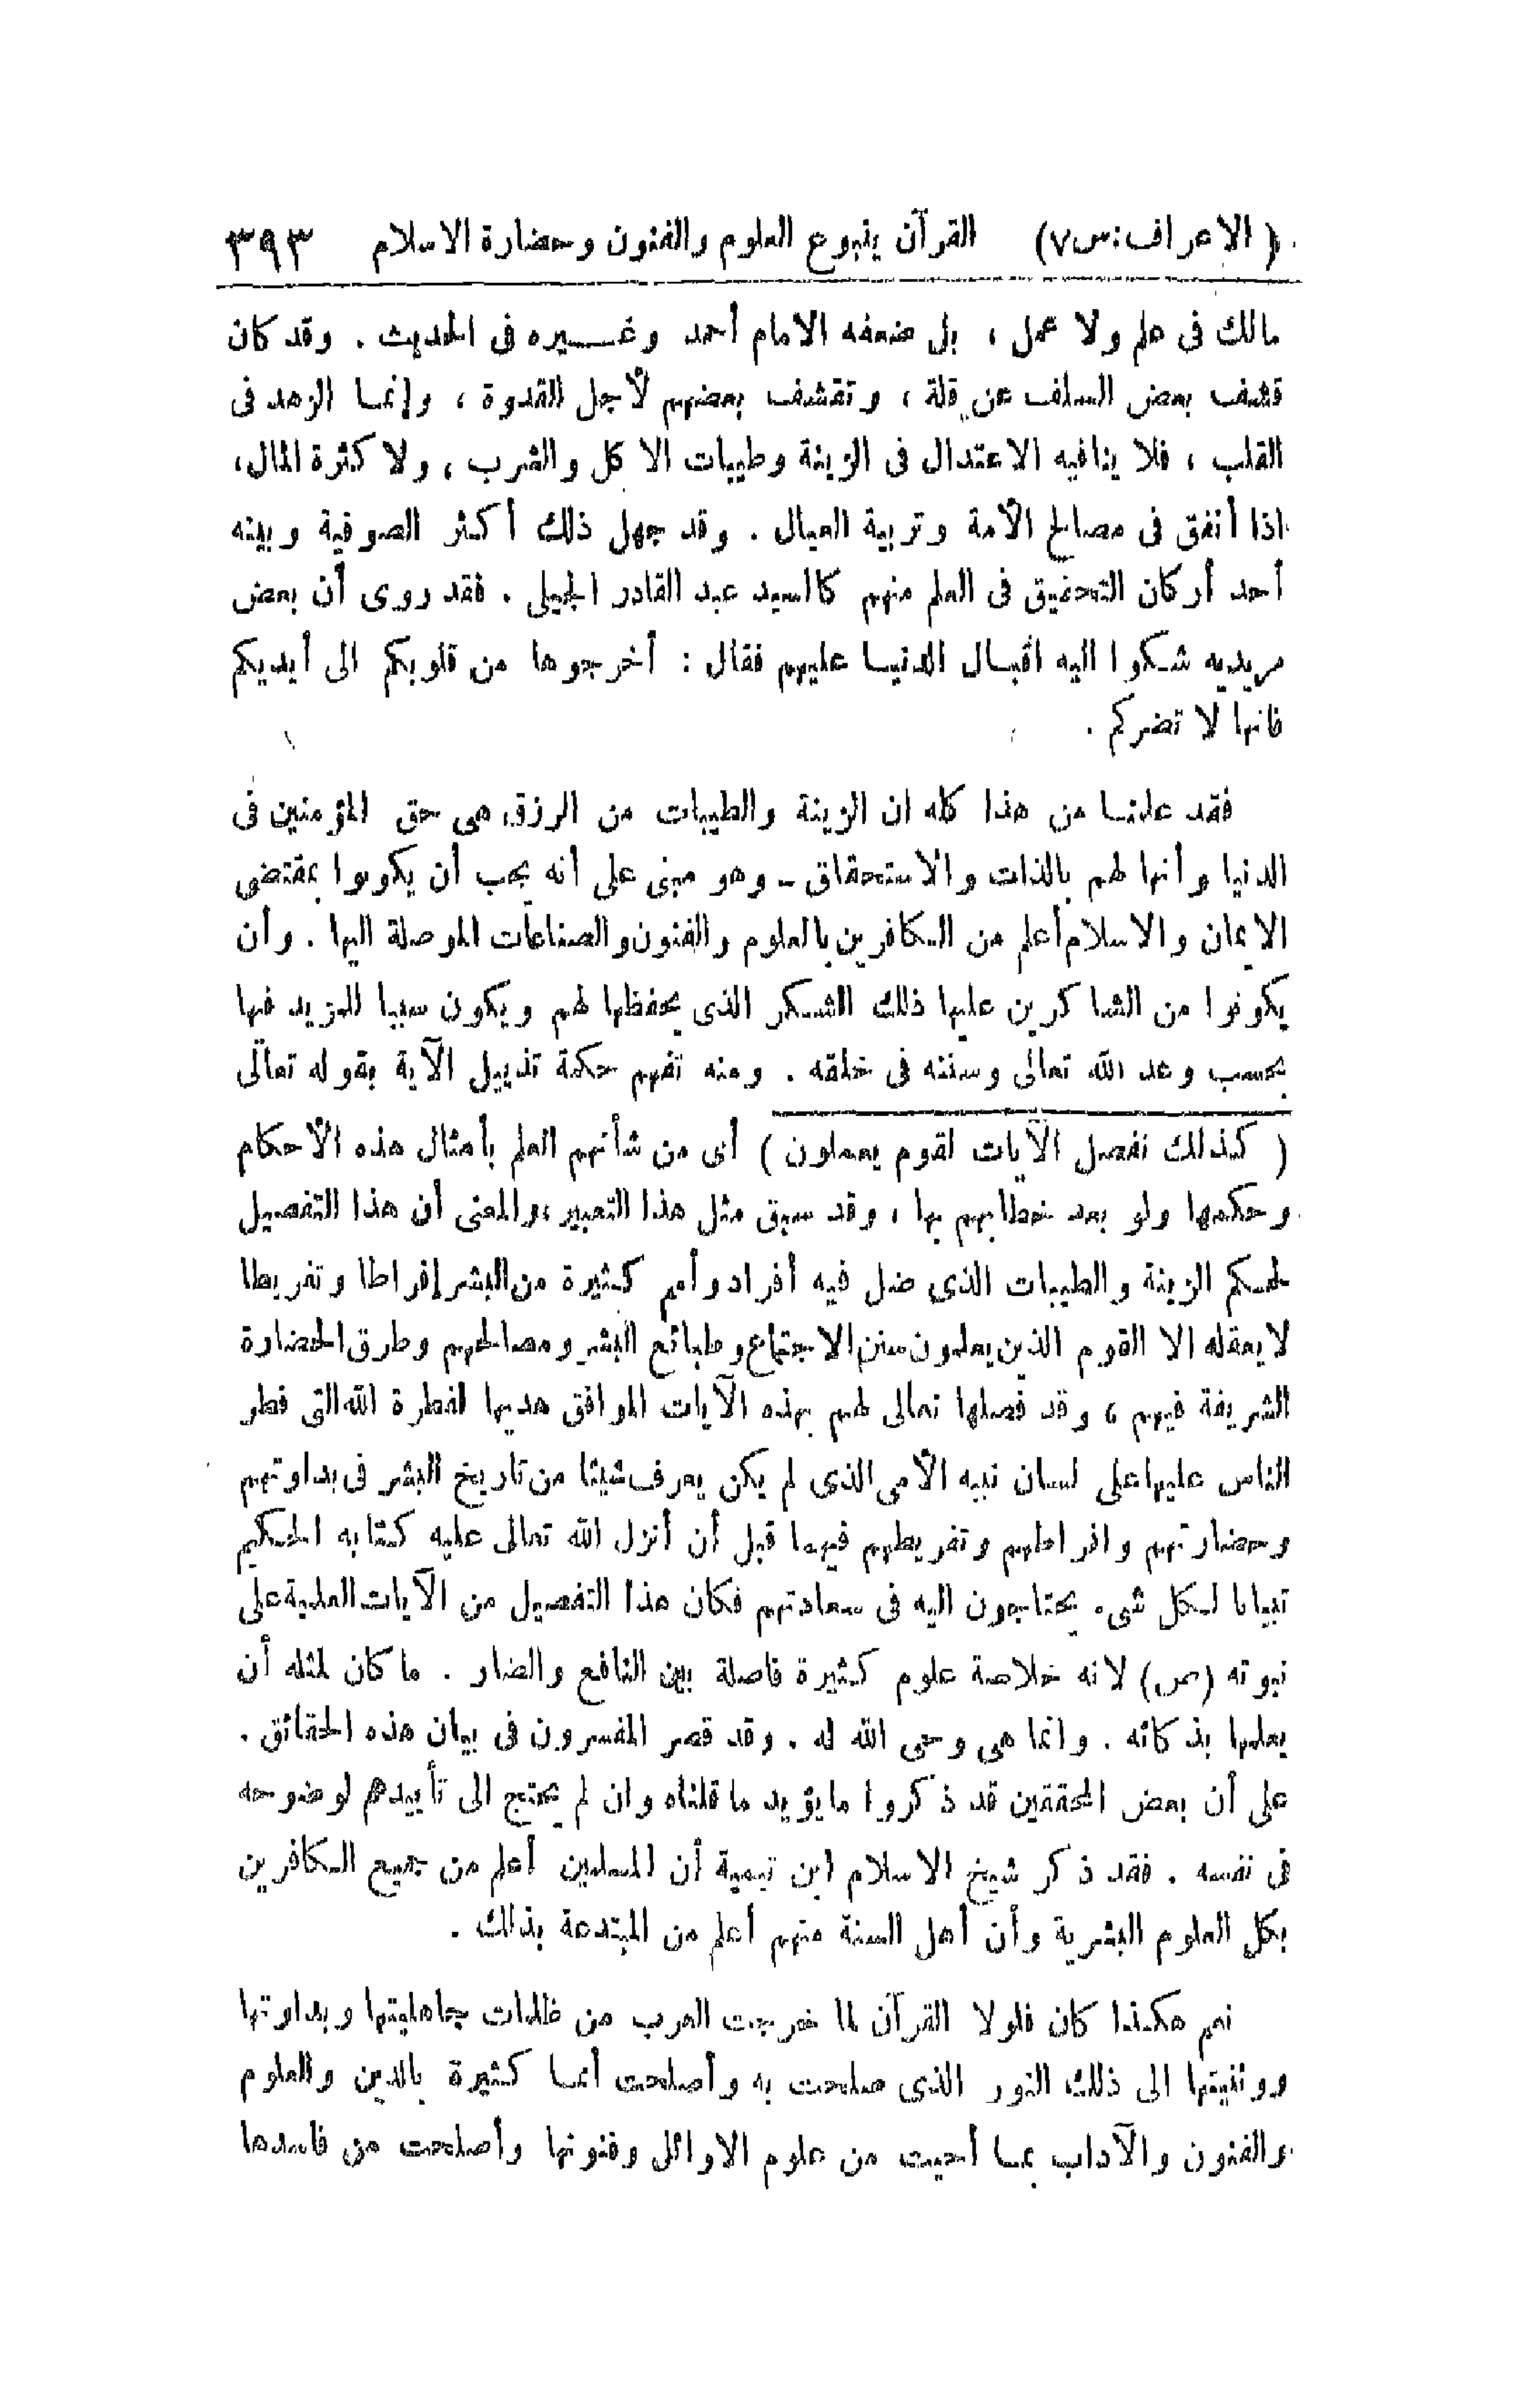 ( الاعراف: س٧) القرآن ينبوع العلوم والفنون وحضارة الاسلام ٣٩٣
مالك فى علم ولا عمل ، بل ضعفه الامام أحمد وغــيره فى الحديث . وقد كان
قشف بعض السلف عن قلة ، وتقشف بعضهم لأجل القدوة ، وإنمـا الزهد فى
القلب ، فلا ينافيه الاعتدال فى الزينة وطيبات الاكل والشرب ، ولا كثرة المال،
اذا أنفق فى مصالح الأمة وتربية العيال . وقد جهل ذلك أكثر الصوفية وبينه
أحد أركان التحقيق فى العلم منهم كالسيد عبد القادر الجيلى . فقد روى أن بعض
مريديه شـكوا اليه اقبـال الدنيـا عليهم فقال : أخرجوها من قلوبكم الى أيديكم
فانها لا تضركم .
فقد علمنـا من هذا كله ان الزينة والطيبات من الرزق هى حق المؤمنين فى
الدنيا وأنها لهم بالذات والاستحقاق ـ وهو مبنى على أنه يجب أن يكونوا بمقتضى
الايمان والاسلام أعلم من الـكافرين بالعلوم والفنون والصناعات الموصلة اليها . وأن
يكونوا من الشاكرين عليها ذلك الشـكر الذى يحفظها لهم ويكون سببا للمزيد فيها
بحسب وعد الله تعالى وسننه فى خلقه . ومنه تفهم حكمة تذييل الآية بقوله تعالى
( كذلك نفصل الآيات لقوم يعملون ) أى من شأنهم العلم بأمثال هذه الأحكام
وحكمها ولو بعد خطابهم بها ، وقد سبق مثل هذا التعبير، والمعنى أن هذا التفصيل
لحـكم الزينة والطيبات الذى ضل فيه أفراد وأمم كـثيرة من البشر إفراطا وتفريطا
لا يعقله الا القوم الذين يعلمون سنن الاجتماع وطبائع البشر ومصالحهم وطرق الحضارة
الشريفة فيهم ، وقد فصلها تعالى لهم بهذه الآيات الموافق هديها لفطرة الله التى فطر
الناس عليها على لسان نبيه الأمى الذى لم يكن يعرف شيئا من تاريخ البشر فى بداوتهم
وحضارتهم وافراطهم وتفريطهم فيهما قبل أن أنزل الله تعالى عليه كتابه الحـكيم
تبيانا لـكل شىء يحتاجون اليه فى سعادتهم فكان هذا التفصيل من الآيات العلمية على
نبوته (ص) لانه خلاصة علوم كثيرة فاصلة بين النافع والضار . ما كان لمثله أن
يعلمها بذكائه . وانما هى وحى الله له . وقد قصر المفسرون فى بيان هذه الحقائق .
على أن بعض المحققين قد ذكروا ما يؤيد ما قلناه وان لم يحتج الى تأييدهم لوضوحه
فى نفسه . فقد ذكر شيخ الاسلام ابن تيمية أن المسلمين أعلم من جميع الـكافرين
بكل العلوم البشرية وأن أهل السنة منهم أعلم من المبتدعة بذلك .
نعم هكـذا كان فلولا القرآن لما خرجت العرب من ظلمات جاهليتها وبداوتها
ووثنيتها الى ذلك النور الذى صلحت به وأصلحت أممـا كثيرة بالدين والعلوم
والفنون والآداب بمـا أحيت من علوم الاوائل وفنونها وأصلحت من فاسدها